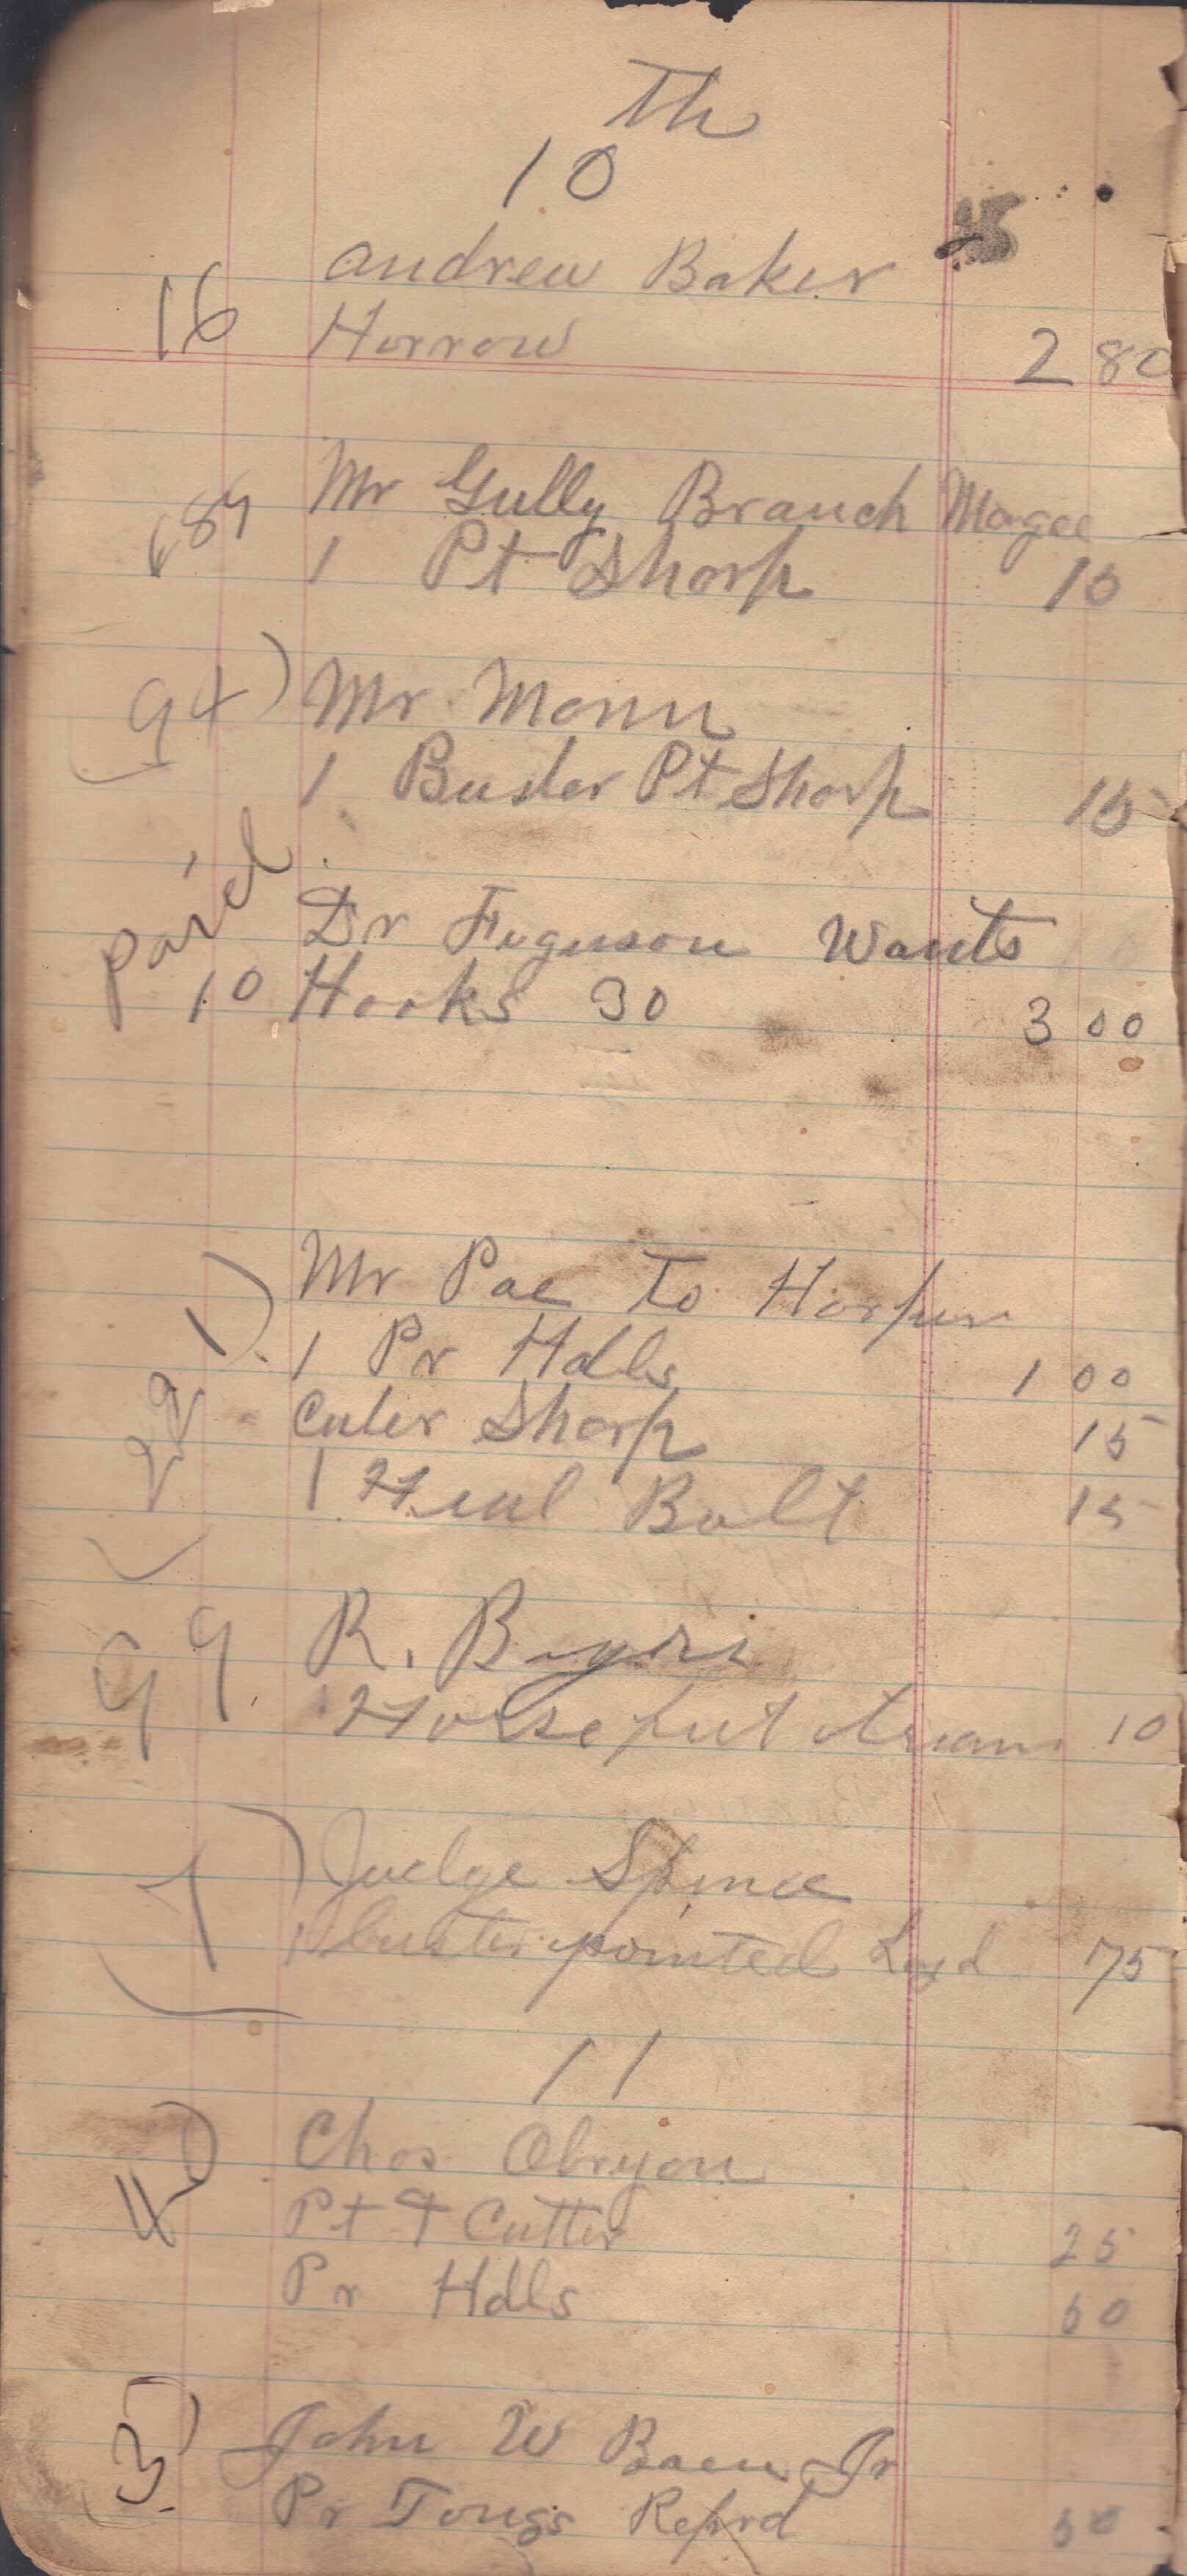 Th
10
Andrew Baker
16 Horrow 2 80
Mr Gully Branch Magee
689 1 Pt Sharp 15
94) Mr Monn
1 Buster Pt Sharp 15
Paid
Dr Ferguson Wants
10 Hooks 30 3 00
Mr Poe To Harper
1 Pr Hdls 1 00
221) Cuter Sharp 15
1 Heul Bolt 15
99 R.
Horse feet 10
7) Judge Spence
1 buster pointed Layd 75
11
4) Chas Obryon
Pt & Cutter 25
Pr Hdls 50
3) John W Baen Jr
Pr Tongs Reprd 50